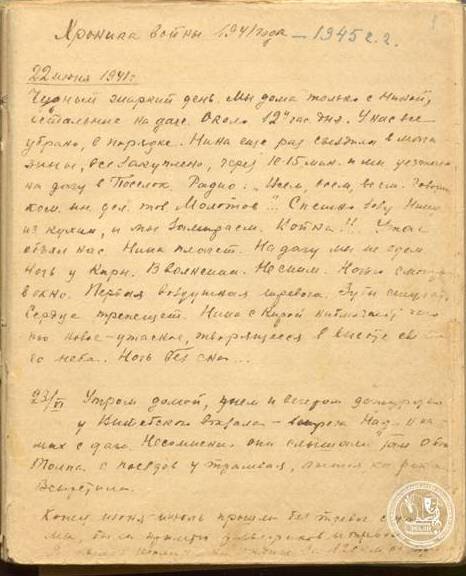 Хроника войны 1941 года – 1945 г.г.
22 июня 1941 г.
Чудный жаркий день. Мы дома только с Ниной,
остальные на даче. Около 12 час. дня. У нас все
убрано, в порядке. Нина еще раз сбегала в мага
зины, все закуплено, через 10-15 мин. и мы уезжаем
на дачу в Поселок. Радио: „Всем, всем, всем. Говорит
ком. ин. дел. тов Молотов"!. Спешно зову Нину
из кухни, и мы замираем. Война!!. Ужас
объял нас. Нина плачет. На дачу мы не едем
Ночь у Киры. В волнении. Не спим. Ночью смотрим
в окно. Первая воздушная тревога. Зубы стучат,
Сердце трепещет. Нина с Кирой наблюдают
новое-ужасное, творящееся в
неба.. Ночь без сна...
23/VI Утром домой, днем и вечером дежурим
у Витебского вокзала – встреча
с дач. Несомненно они слышали там
Толпа с поездов у трамвая,
Встретила.
Конец июня-июль прошли без тревог с